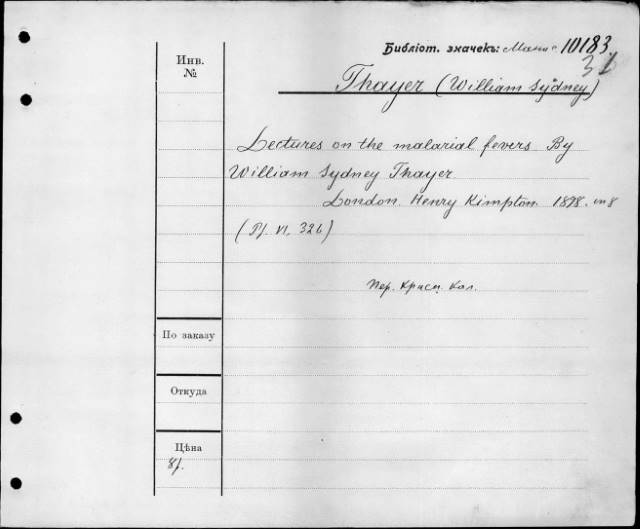 Инв.
№
Библіот. значекъ: 10183
31
Thayer (William Sydney)
Lectures on the malarial fevers By
William Sydney Thayer
London. Henry Kimpton. 1898. in 8
(Pf. VI, 326)
Пер. Красн. Кол.
По заказу
Откуда
Цѣна
8f.